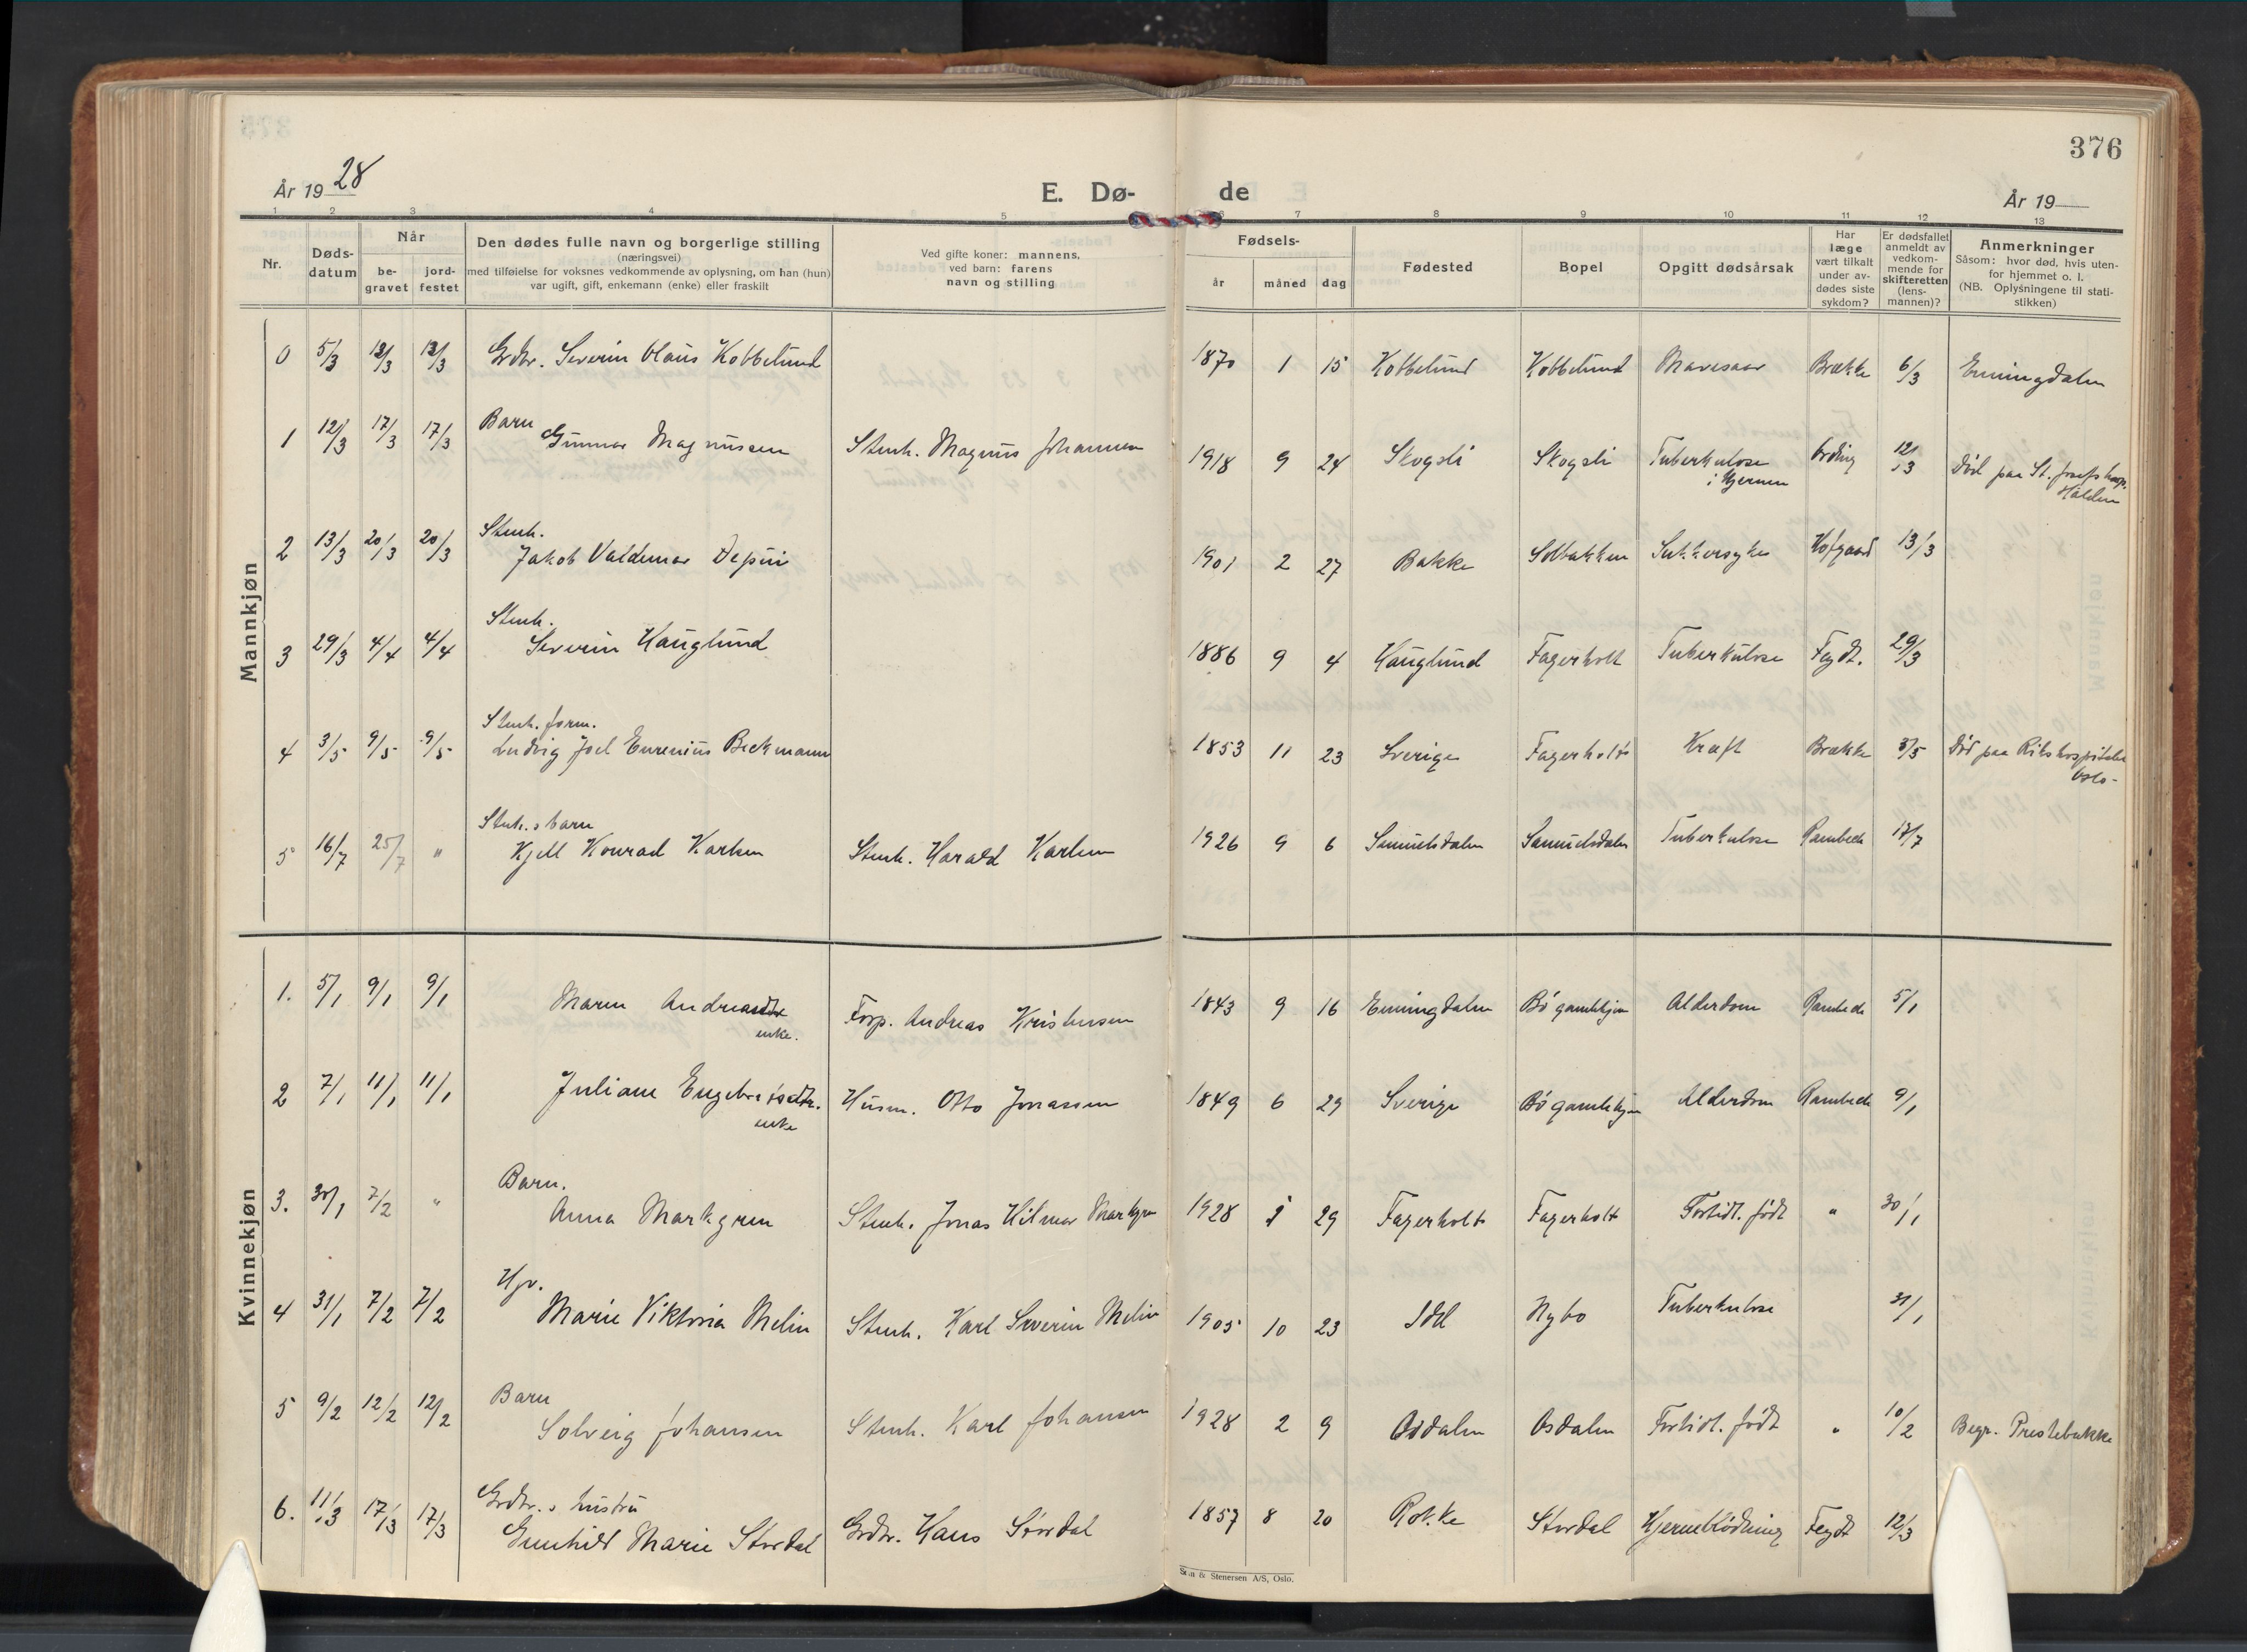 376
År 1928
E. Dø-
de
År 19
1 2 3 4 5 6 7 8 9 10 11 12 13
Nr.
Døds-
datum
Når
be-
gravet
jord-
festet
Den dødes fulle navn og borgerlige stilling
(næringsvei)
med tilføielse for voksnes vedkommende av oplysning, om han (hun)
var ugift, gift, enkemann (enke) eller fraskilt
Ved gifte koner: mannens,
ved barn: farens
navn og stilling
Fødsels-
år måned dag
Fødested
Bopel
Opgitt dødsårsak
Har
læge
vært tilkalt
under av-
dødes siste
sykdom?
Er dødsfallet
anmeldt av
vedkom-
mende for
skifteretten
(lens-
mannen)?
Anmerkninger
Såsom: hvor død, hvis uten-
for hjemmet o. l.
(NB. Oplysningene til stati-
stikken)
Mannkjøn
0 5/3 12/3 12/3 Grdbr. Severin Claus Kobbelund 1870 1 15 Kobbelund Kobbelund Mavesaar Brække 6/3 Enningdalen
Barn
1 12/3 17/3 17/3 Gunnar Magnussen Stenh. Magnus Johannesen 1918 9 24 Skogsli Skogsli Tuberkulose Ording 12/3 Død paa St. Josefs hosp.
i Hjernen Halden
Stenh.
2 13/3 20/3 20/3 Jakob Valdemar Depui 1901 2 27 Bakke Solbakken Sukkersyke Hofgaard 13/3
Stenh.
3 29/3 4/4 4/4 Severin Hauglund 1886 9 4 Hauglund Fagerholt Tuberkulose Feydt. 29/3
Stenh. form.
4 3/5 9/5 9/5 Ludvig Joel Eurenius Beckmann 1853 11 23 Sverige Fagerholt Kræft Brække 3/5 Død paa Rikshospitalet
Oslo-
Stenh.s barn
5 16/7 25/7 " Kjell Konrad Karlsen Stenh. Harald Karlsen 1926 9 6 Samuelsdalen Samuelsdalen Tuberkulose Rambech 17/7
Kvinnekjøn
1. 5/1 9/1 9/1 Maren Andreasdtr Forp. Andreas Kristensen 1843 9 16 Enningdalen Bø gamlehjem Alderdom Rambech 5/1
enke.
2 7/1 11/1 11/1 Juliane Engebretsdtr. Husm. Otto Jonassen 1849 6 29 Sverige Bø gamlehjem Alderdom Rambech 9/1
enke
Barn.
3. 30/1 7/2 " Anna Markgren Stenh. Jonas Hilmar Markgren 1928 1 29 Fagerholt Fagerholt Fortidl. født " 30/1
Hpr.
4 31/1 7/2 7/2 Marie Viktoria Melin Stenh. Karl Severin Melin 1905 10 23 Idd Nybo Tuberkulose 31/1
Barn
5 9/2 12/2 12/2 Solveig Johansen Stenh. Karl Johansen 1928 2 9 Osdalen Osdalen Fortidl. født " 10/2 Begr. Prestebakke
Grdbr.s hustru
6. 11/3 17/3 17/3 Gunhild Marie Stordal Grdbr. Hans Stordal 1857 8 20 Rokke Stordal Hjerneblødning Feydt 12/3
& Stenersen A/S, Oslo.